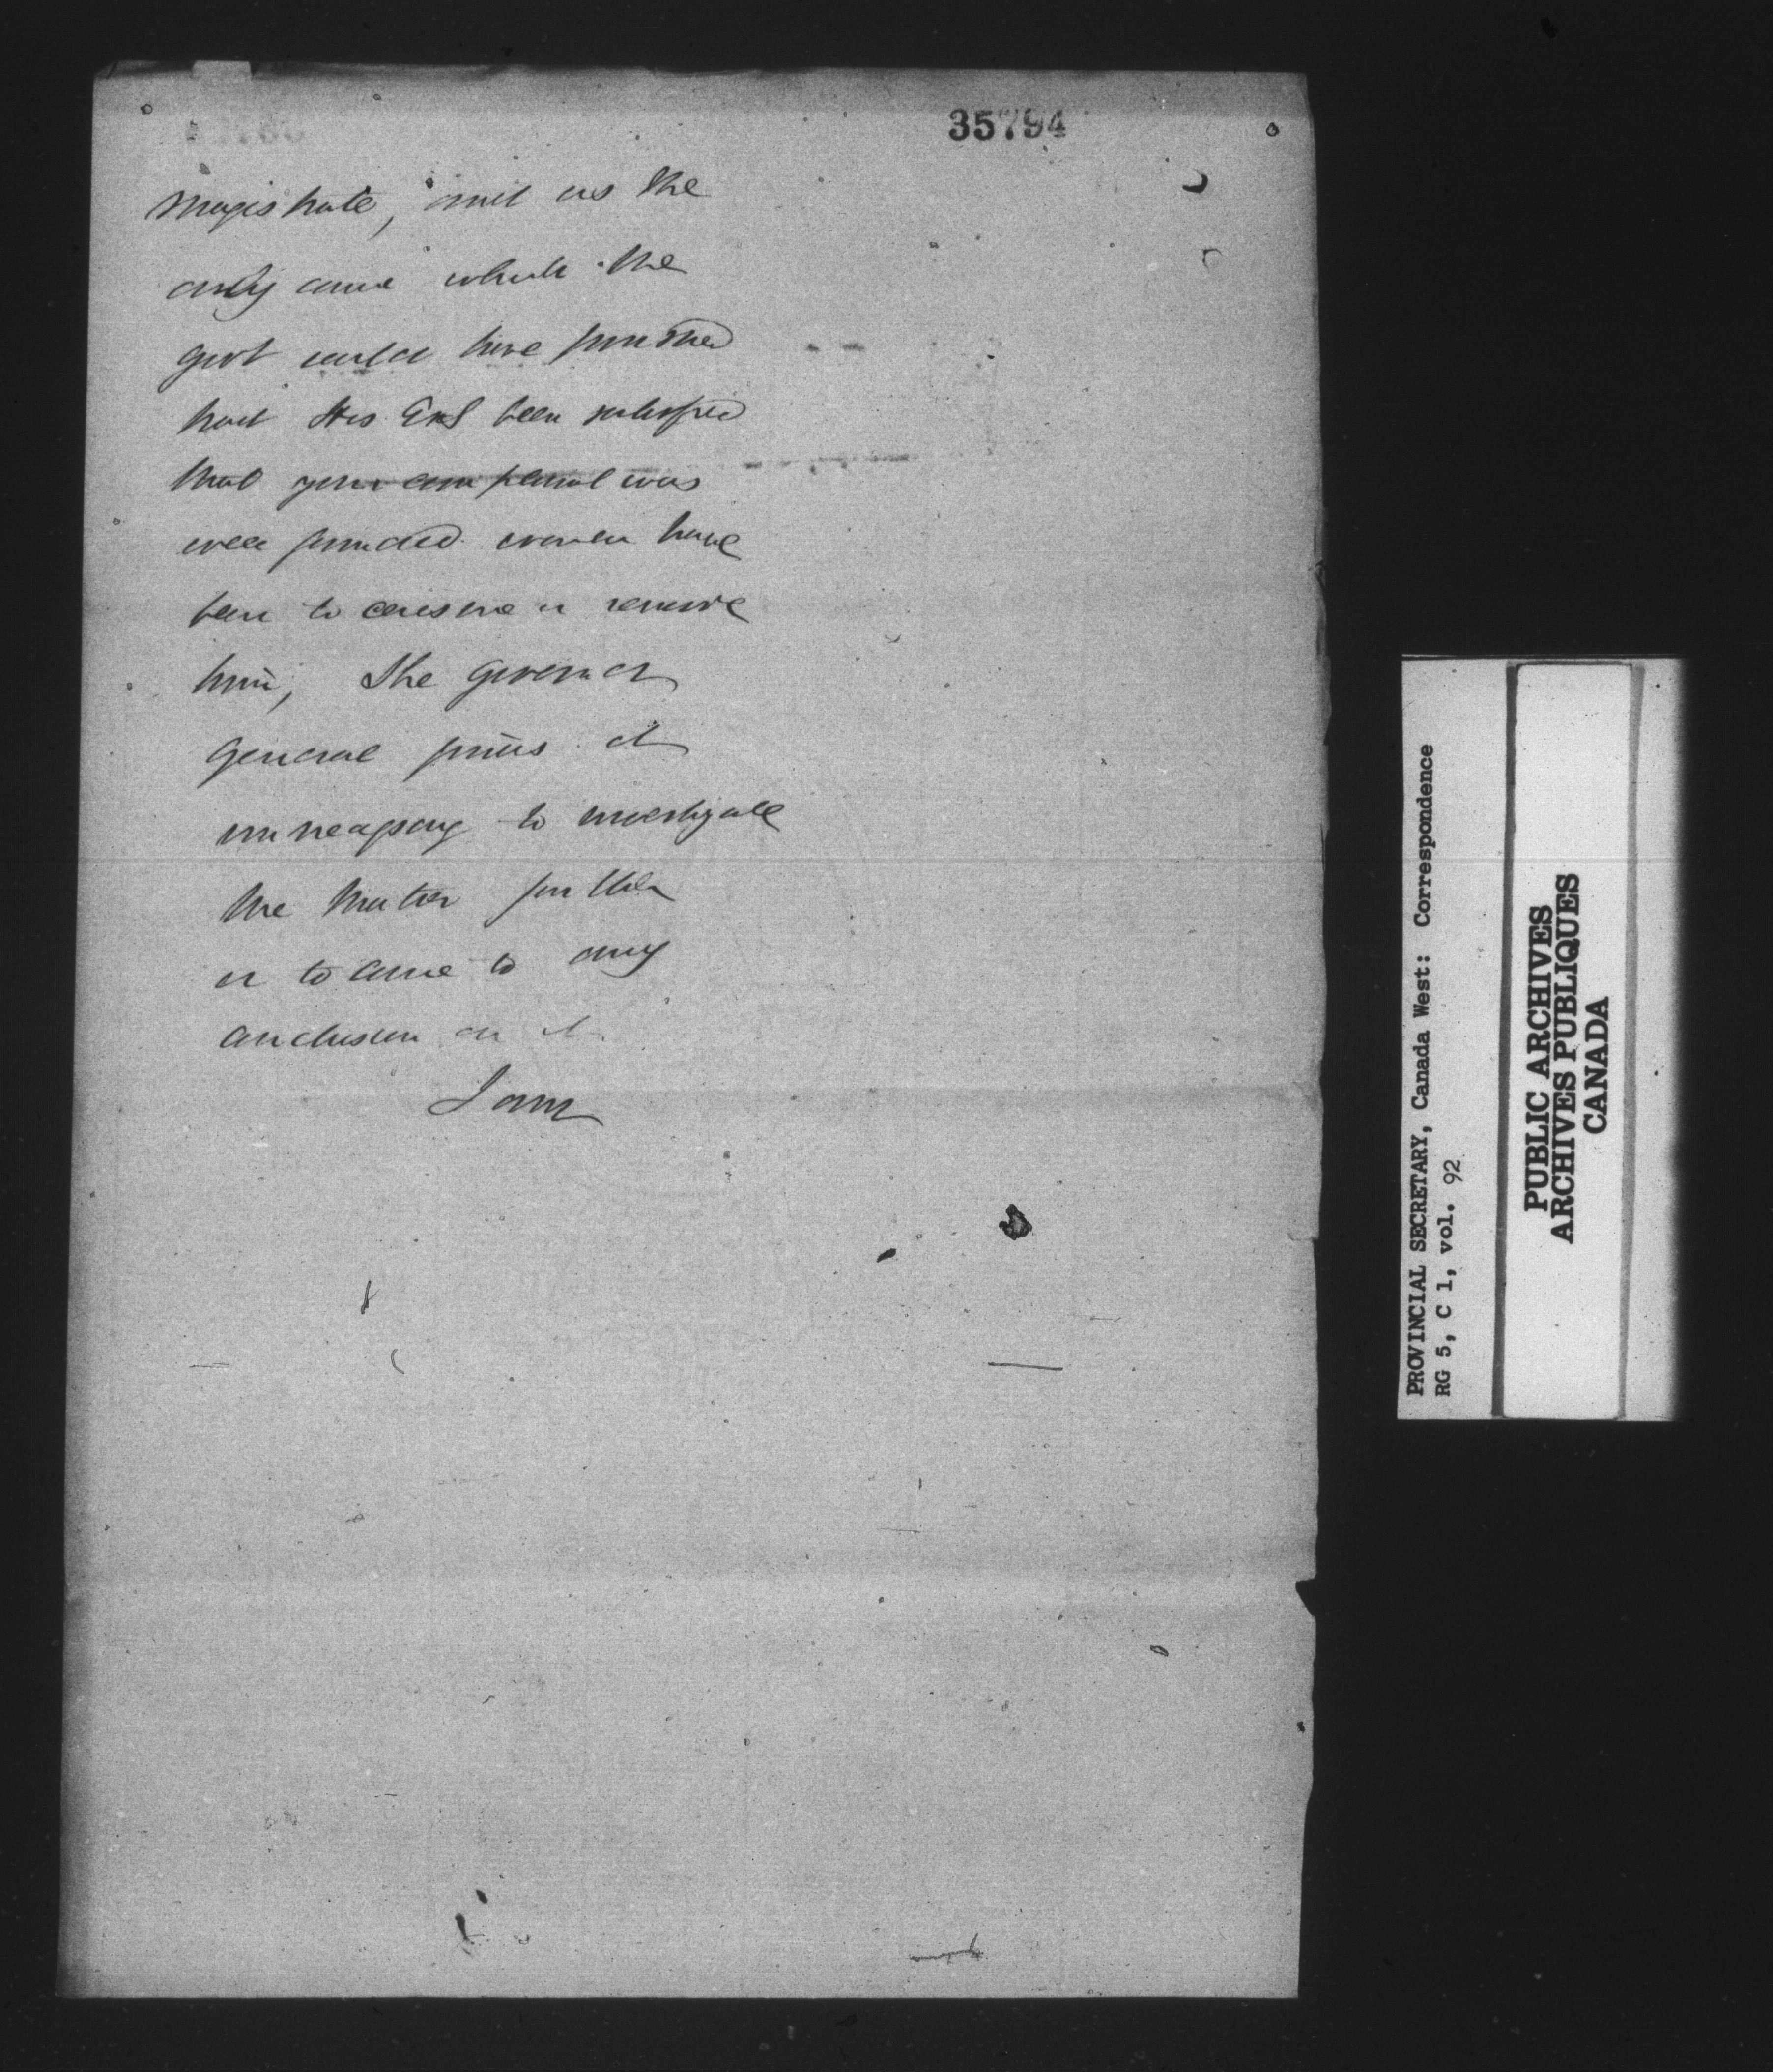 35794
Magistrate, and as the
only course which the
Govt could have pursued
had His Exy been satisfied
that your complaint was
well founded would have
been to censure or remove
him, The Governor
General finds it
unnecessary to investigate
the matter further
or to come to any
conclusion on it
I am
PROVINCIAL SECRETARY, Canada West: Correspondence
RG 5, C 1, vol. 92
PUBLIC ARCHIVES
ARCHIVES PUBLIQUES
CANADA